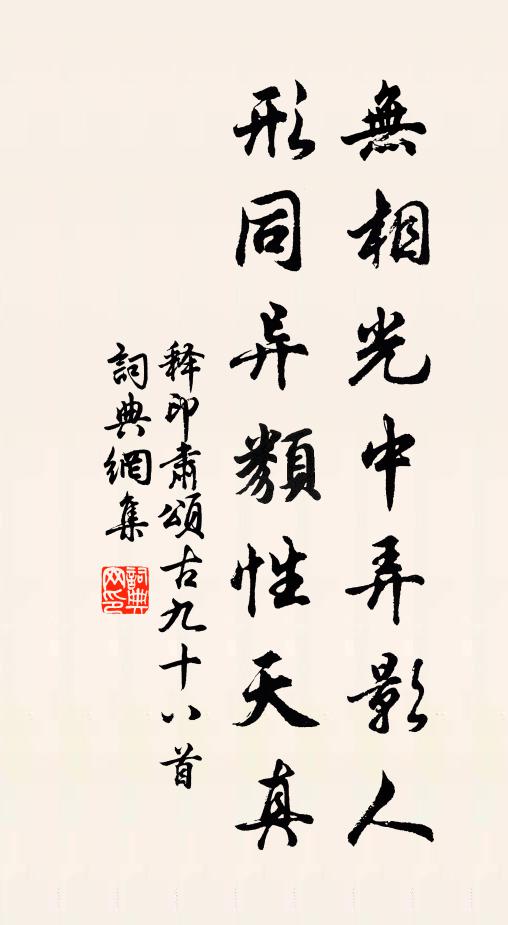 無相光中弄影人
形同异類性天真
释印肃頌古九十八首
詞典網集
詞典
网印